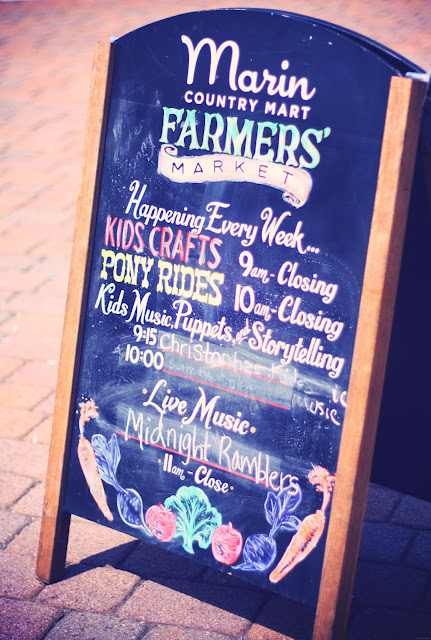 Marin
COUNTRY MART
FARMERS'
MARKET
Happening Every Week...
KIDS CRAFTS 9am - Closing
PONY RIDES 10am - Closing
Kids Music, Puppets, and Storytelling
9:15 Christopher
10:00 Music
Live Music
Midnight Ramblers
11am - Close